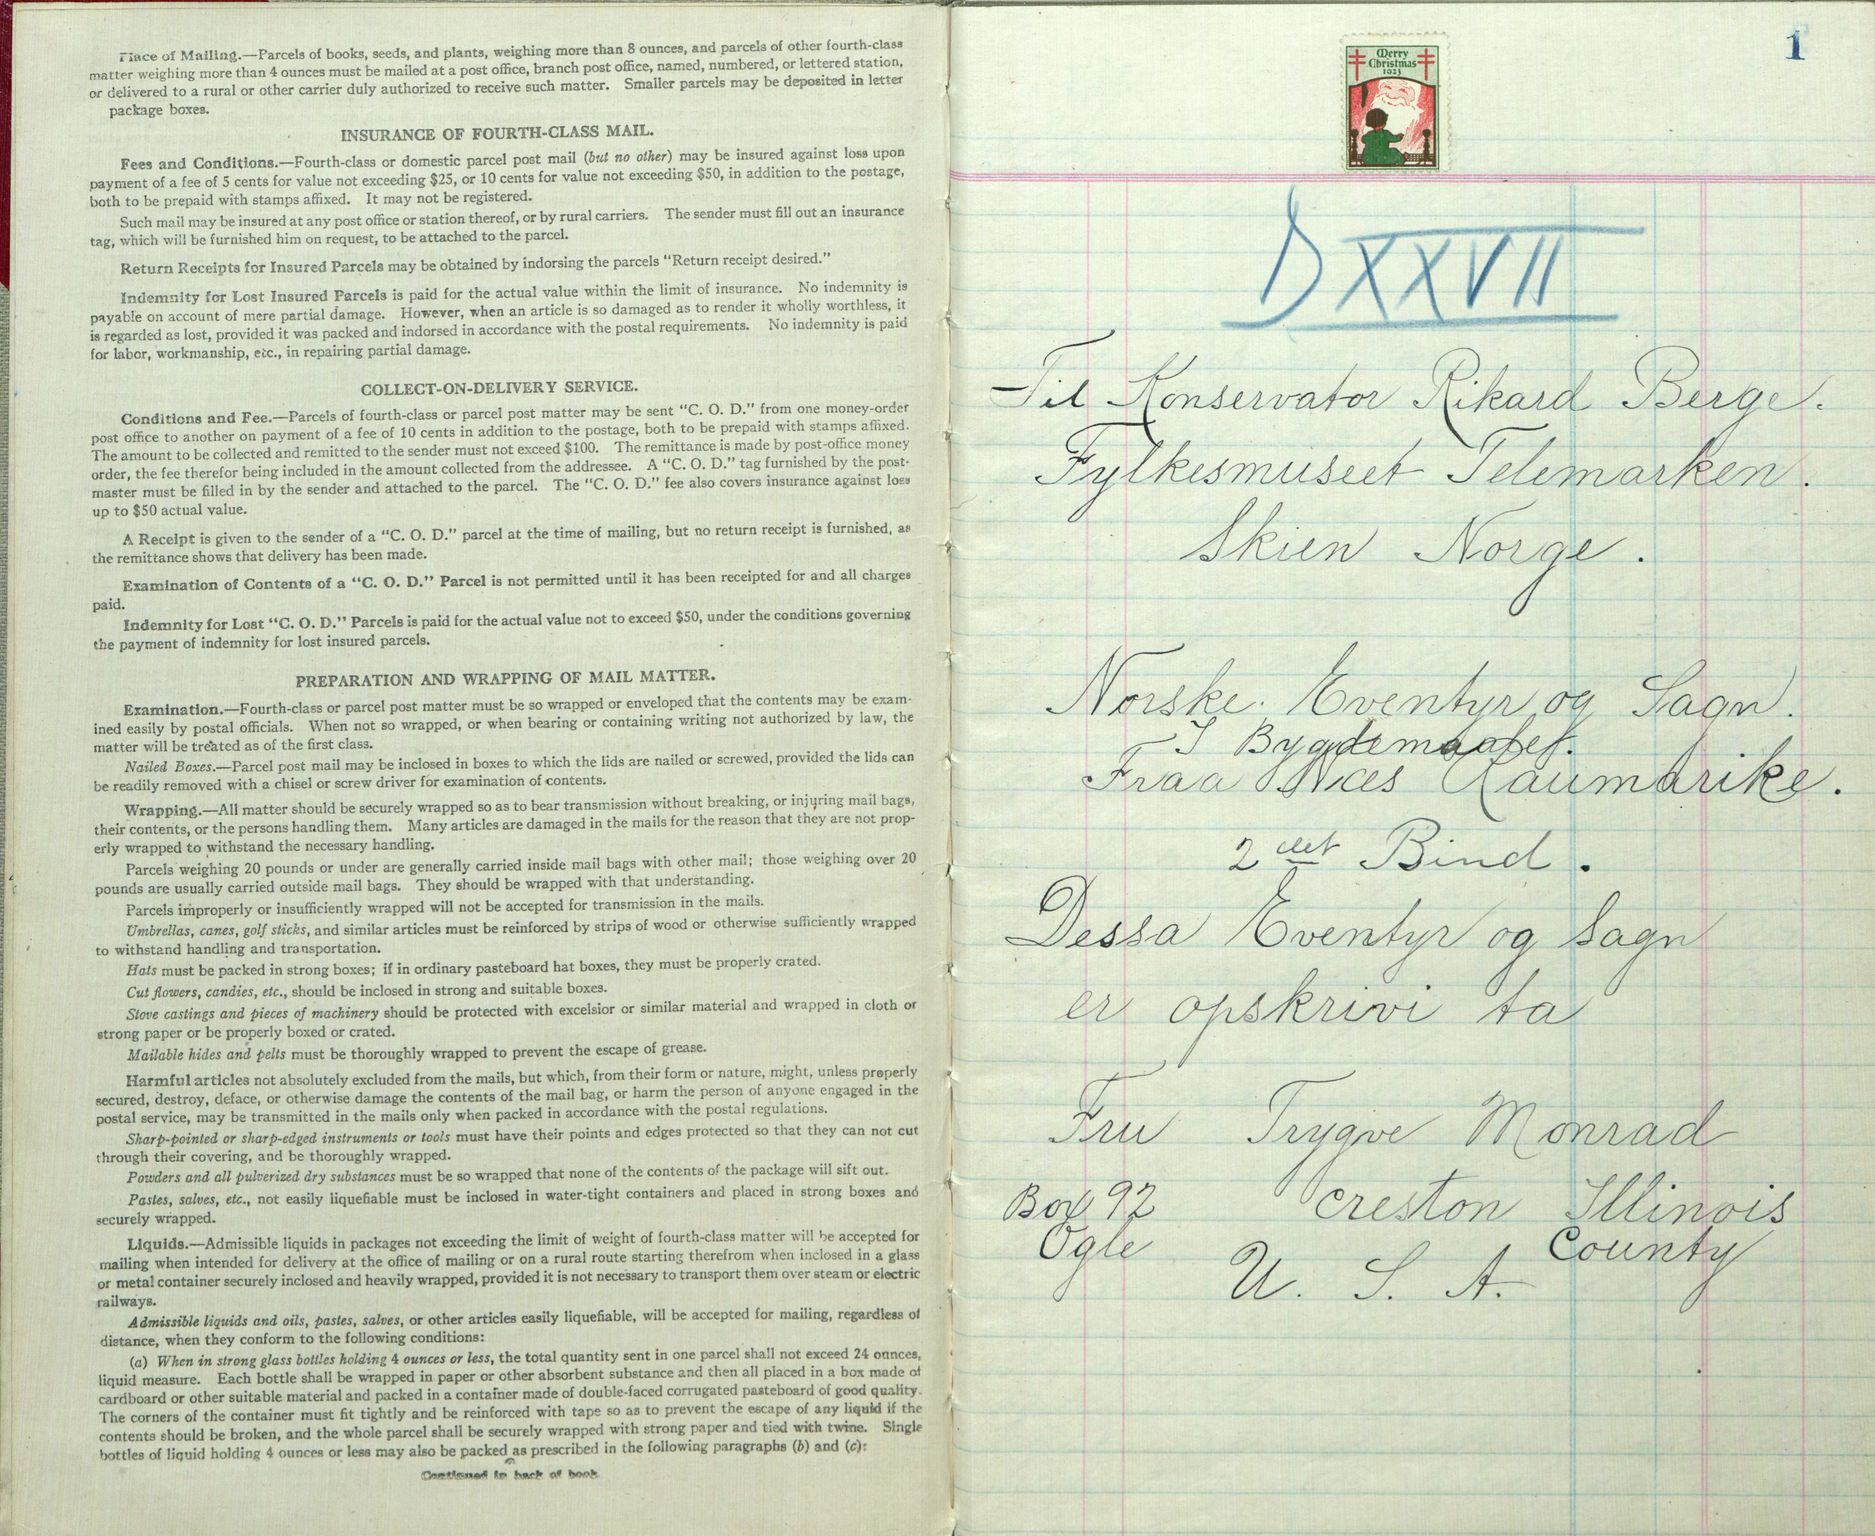 Place of Mailing.—Parcels of books, seeds, and plants, weighing more than 8 ounces, and parcels of other fourth-class
matter weighing more than 4 ounces must be mailed at a post office, branch post office, named, numbered, or lettered station,
or delivered to a rural or other carrier duly authorized to receive such matter. Smaller parcels may be deposited in letter
package boxes.
INSURANCE OF FOURTH-CLASS MAIL.
Fees and Conditions.—Fourth-class or domestic parcel post mail (but no other) may be insured against loss upon
payment of a fee of 5 cents for value not exceeding $25, or 10 cents for value not exceeding $50, in addition to the postage,
both to be prepaid with stamps affixed. It may not be registered.
Such mail may be insured at any post office or station thereof, or by rural carriers. The sender must fill out an insurance
tag, which will be furnished him on request, to be attached to the parcel.
Return Receipts for Insured Parcels may be obtained by indorsing the parcels "Return receipt desired."
Indemnity for Lost Insured Parcels is paid for the actual value within the limit of insurance. No indemnity is
payable on account of mere partial damage. However, when an article is so damaged as to render it wholly worthless, it
is regarded as lost, provided it was packed and indorsed in accordance with the postal requirements. No indemnity is paid
for labor, workmanship, etc., in repairing partial damage.
COLLECT-ON-DELIVERY SERVICE.
Conditions and Fee.—Parcels of fourth-class or parcel post matter may be sent "C. O. D." from one money-order
post office to another on payment of a fee of 10 cents in addition to the postage, both to be prepaid with stamps affixed.
The amount to be collected and remitted to the sender must not exceed $100. The remittance is made by post-office money
order, the fee therefor being included in the amount collected from the addressee. A "C. O. D." tag furnished by the post-
master must be filled in by the sender and attached to the parcel. The "C. O. D." fee also covers insurance against loss
up to $50 actual value.
A Receipt is given to the sender of a "C. O. D." parcel at the time of mailing, but no return receipt is furnished, as
the remittance shows that delivery has been made.
Examination of Contents of a "C. O. D." Parcel is not permitted until it has been receipted for and all charges
paid.
Indemnity for Lost "C. O. D." Parcels is paid for the actual value not to exceed $50, under the conditions governing
the payment of indemnity for lost insured parcels.
PREPARATION AND WRAPPING OF MAIL MATTER.
Examination.—Fourth-class or parcel post matter must be so wrapped or enveloped that the contents may be exam-
ined easily by postal officials. When not so wrapped, or when bearing or containing writing not authorized by law, the
matter will be treated as of the first class.
Nailed Boxes.—Parcel post mail may be inclosed in boxes to which the lids are nailed or screwed, provided the lids can
be readily removed with a chisel or screw driver for examination of contents.
Wrapping.—All matter should be securely wrapped so as to bear transmission without breaking, or injuring mail bags,
their contents, or the persons handling them. Many articles are damaged in the mails for the reason that they are not prop-
erly wrapped to withstand the necessary handling.
Parcels weighing 20 pounds or under are generally carried inside mail bags with other mail; those weighing over 20
pounds are usually carried outside mail bags. They should be wrapped with that understanding.
Parcels improperly or insufficiently wrapped will not be accepted for transmission in the mails.
Umbrellas, canes, golf sticks, and similar articles must be reinforced by strips of wood or otherwise sufficiently wrapped
to withstand handling and transportation.
Hats must be packed in strong boxes; if in ordinary pasteboard hat boxes, they must be properly crated.
Cut flowers, candies, etc., should be inclosed in strong and suitable boxes.
Stove castings and pieces of machinery should be protected with excelsior or similar material and wrapped in cloth or
strong paper or be properly boxed or crated.
Mailable hides and pelts must be thoroughly wrapped to prevent the escape of grease.
Harmful articles not absolutely excluded from the mails, but which, from their form or nature, might, unless properly
secured, destroy, deface, or otherwise damage the contents of the mail bag, or harm the person of anyone engaged in the
postal service, may be transmitted in the mails only when packed in accordance with the postal regulations.
Sharp-pointed or sharp-edged instruments or tools must have their points and edges protected so that they can not cut
through their covering, and be thoroughly wrapped.
Powders and all pulverized dry substances must be so wrapped that none of the contents of the package will sift out.
Pastes, salves, etc., not easily liquefiable must be inclosed in water-tight containers and placed in strong boxes and
securely wrapped.
Liquids.—Admissible liquids in packages not exceeding the limit of weight of fourth-class matter will be accepted for
mailing when intended for delivery at the office of mailing or on a rural route starting therefrom when inclosed in a glass
or metal container securely inclosed and heavily wrapped, provided it is not necessary to transport them over steam or electric
railways.
Admissible liquids and oils, pastes, salves, or other articles easily liquefiable, will be accepted for mailing, regardless of
distance, when they conform to the following conditions:
(a) When in strong glass bottles holding 4 ounces or less, the total quantity sent in one parcel shall not exceed 24 ounces,
liquid measure. Each bottle shall be wrapped in paper or other absorbent substance and then all placed in a box made of
cardboard or other suitable material and packed in a container made of double-faced corrugated pasteboard of good quality.
The corners of the container must fit tightly and be reinforced with tape so as to prevent the escape of any liquid if the
contents should be broken, and the whole parcel shall be securely wrapped with strong paper and tied with twine. Single
bottles of liquid holding 4 ounces or less may also be packed as prescribed in the following paragraphs (b) and (c):
Continued in back of book
1
Merry
Christmas
1923
D XXVII
Til Konservator Rikard Berge.
Fylkesmuseet Telemarken.
Skien Norge.
Norske Eventyr og Sagn.
I Bygdemaalet.
Fraa Nes Raumarike.
2 det Bind.
Dessa Eventyr og Sagn
er opskrivi ta
Fru Trygve Monrad
Box 92 Creston Illinois
Ogle County
U. S. A.